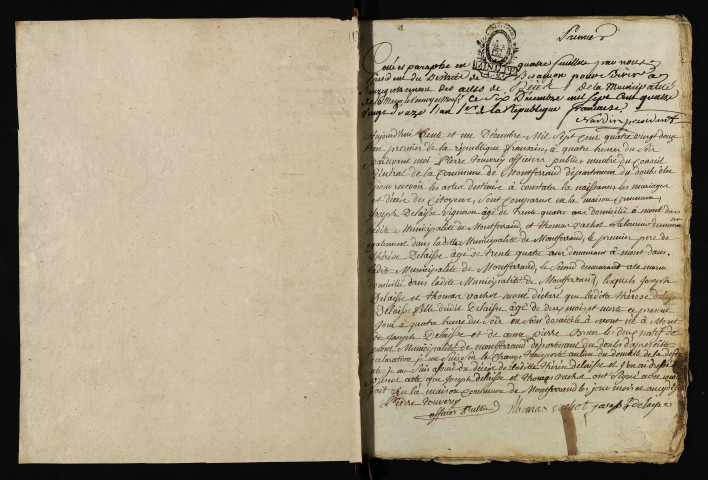 Premier
Cotté et paraphé en quatre feuillets par nous
President du District de Besançon pour servir à
l'enregistrement des actes de Décès de la Municipalité
de ce six Décembre mil sept cent quatre
vingt douze l'an 1er de la République française
Nardin president
Aujourd'huy trente et un Décembre Mil Sept cent quatre vingt douze
l'an premier de la république française, à quatre heures du soir
pardevant moi Pierre Jouverey officier public, membre du Conseil
Général de la Commune de Montferrand département du doubs élu
pour recevoir les actes destinés à constater la naissance, les mariages
et décès des Citoyens, sont comparus en la maison commune,
Joseph Delaisse Vigneron âgé de trente quatre ans domicilié à dans
ladite Municipalité de Montferrand, et thomas vachot Laboureur
également dans ladite Municipalité de Montferrand, le premier pere de
thérèse Delaisse âgé de trente quatre ans demeurant à dans
ladite Municipalité de Montferrand, le second demeurant
domicilié dans ladite Municipalité de Montferrand, lesquels Joseph
Delaisse et thomas vachot m'ont déclaré que ladite thérèse
Delaisse fille dudit Delaisse âgé de deux mois est morte ce present
jour à quatre heure du soir en son domicile à
de Joseph Delaisse et de anne pierre
Municipalité de montferrand département du doubs d'après cette
declaration je me suis sur le champ transporté au lieu de domicile
je me suis assuré du décès de laditte thérèse Delaisse et j'en ai dressé le
présent acte que Joseph delaisse et thomas vachot ont signé avec moi
fait en la maison commune de Montferrand les jour mois et an
Pierre Jouverey
officier Public
thomas vachot joseph delaisse